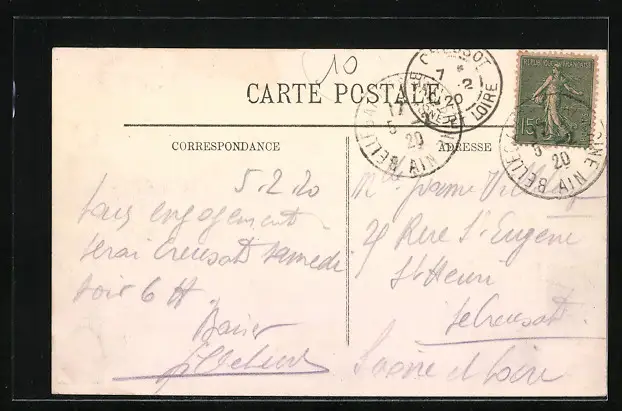 10
CARTE POSTALE
CORRESPONDANCE
ADRESSE
REPUBLIQUE FRANÇAISE
15c
CREUSOT
7
2
20
LOIRE
5
20
BELLEGARDE
AIN
5
20
BELLEG
AIN
5.2.20
Sans engagement
serai Creusot samedi
soir 6 H.
Baiser
Mlle Jeanne
29 Rue St Eugène
St Henri
Le Creusot.
Saône et Loire